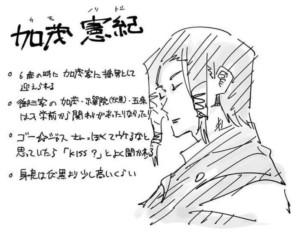 カモ ノリトシ
加茂 憲紀
• 6歳の時に 加茂家に嫡男として
迎えられる
• 御三家の 加茂・禪院(伏黒)・五条
は入学前から関わりがあったりなかったり
• 思っていたら「KISS?」とよく聞かれる
• 身長は伏黒より少し高いくらい